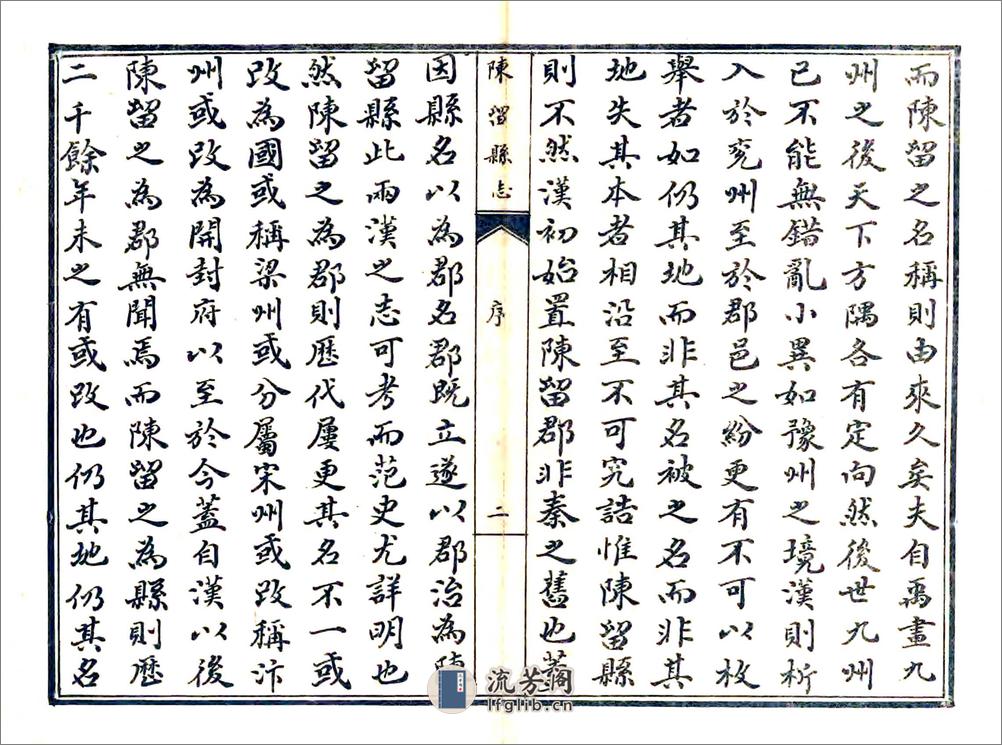 而陳留之名稱則由來久矣夫自禹畫九
州之後天下方隅各有定向然後世九州
已不能無錯亂小異如豫州之境漢則析
入於兖州至於郡邑之紛更有不可以枚
舉者如仍其地而非其名被之名而非其
地失其本者相沿至不可究詰惟陳留縣
則不然漢初始置陳留郡非秦之舊也蓋
陳留縣志
序
二
因縣名以為郡名郡既立遂以郡治為陳
留縣此兩漢之志可考而范史尤詳明也
然陳留之為郡則歷代屢更其名不一或
改為國或稱梁州或分屬宋州或改稱汴
州或改為開封府以至於今蓋自漢以後
陳留之為郡無聞焉而陳留之為縣則歷
二千餘年未之有或改也仍其地仍其名
流芳閣
lfglib.cn